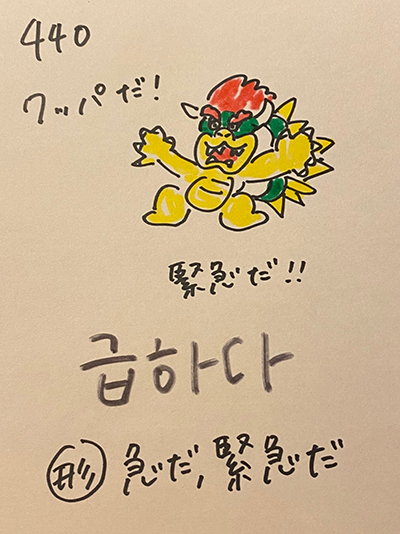 440
クッパだ!
緊急だ!!
급하다
形 急だ,緊急だ